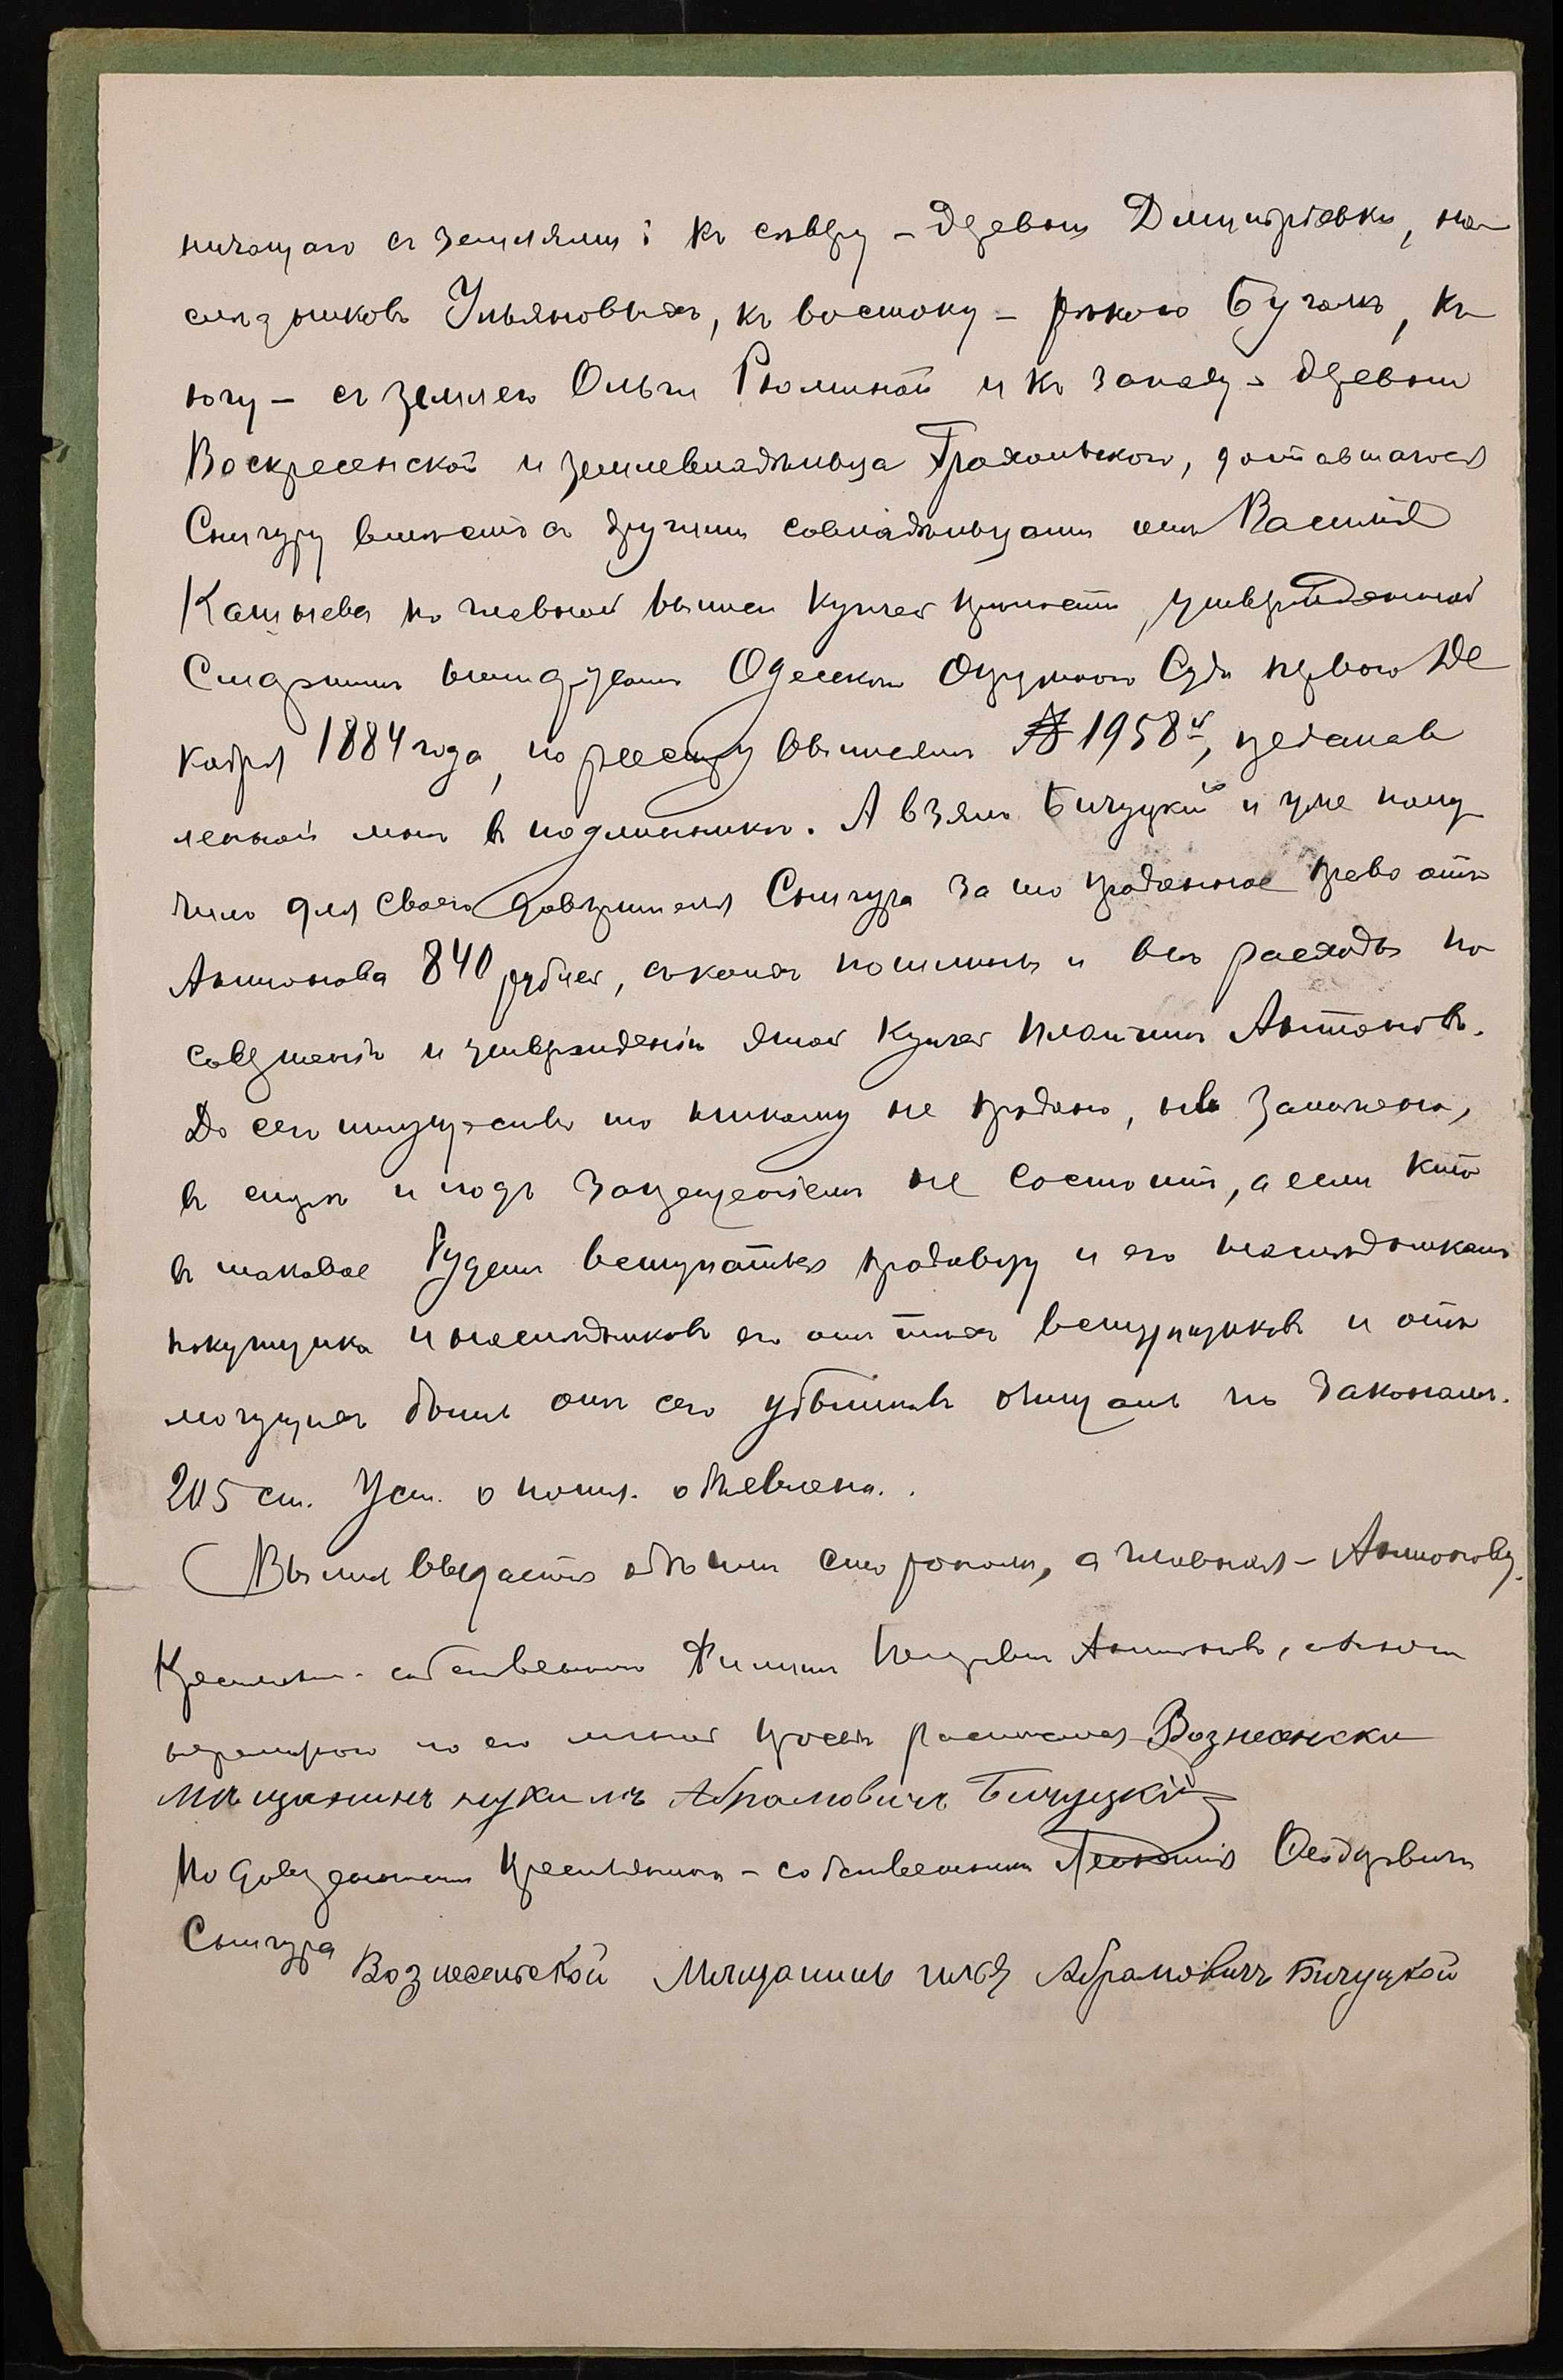 ничащаго съ землями: къ сѣверу – деревни Дмитріевки, на
слѣдниковъ Ульяновыхъ, къ востоку – рѣкою Бугомъ, къ
югу – съ землею Ольги Рюминой и къ западу – деревни
Воскресенской и землевладѣльца Грохольскаго, доставшагося
Снигуру вмѣстѣ съ другими совладѣльцами отъ Василія
по главной выписи купчей крѣпости, утвержденной
Старшимъ Нотаріусомъ Одесскаго Окружнаго Суда перваго Де
кабря 1884 года, по реестру выписямъ № 1958й, представ
ленной мнѣ въ подлинникѣ. А взялъ Бичуцкій и уже полу
чилъ для своего довѣрителя Снигура за то проданное право отъ
Антонова 840 рублей, съ коихъ пошлины и всѣ расходы по
совершенію и утвержденію этой купчей платитъ Антоновъ.
До сего имущество то никому не продано, не заложено,
въ спорѣ и подъ запрещеніемъ не состоитъ, а если кто
въ таковое будетъ вступаться продавцу и его наслѣдникамъ
покупщика и наслѣдниковъ его отъ тѣхъ вступщиковъ и отъ
могущихъ быть отъ сего убытковъ очищать по законамъ.
205 ст. Уст. о пошл. объявлена.
Выпись выдать обѣимъ сторонамъ, а главная – Антонову.
Крестьян. собственникъ Филиппъ Петровъ Антоновъ, а вмѣсто
неграмотнаго по его личной просьбѣ расписался Вознесенски
мѣщанинъ Абрамовичъ Бичуцкій
По довѣренности крестьянина – собственника Ѳеодоровича
Снигура Вознесенской Мѣщанинъ Абрамовичъ Бичуцкой